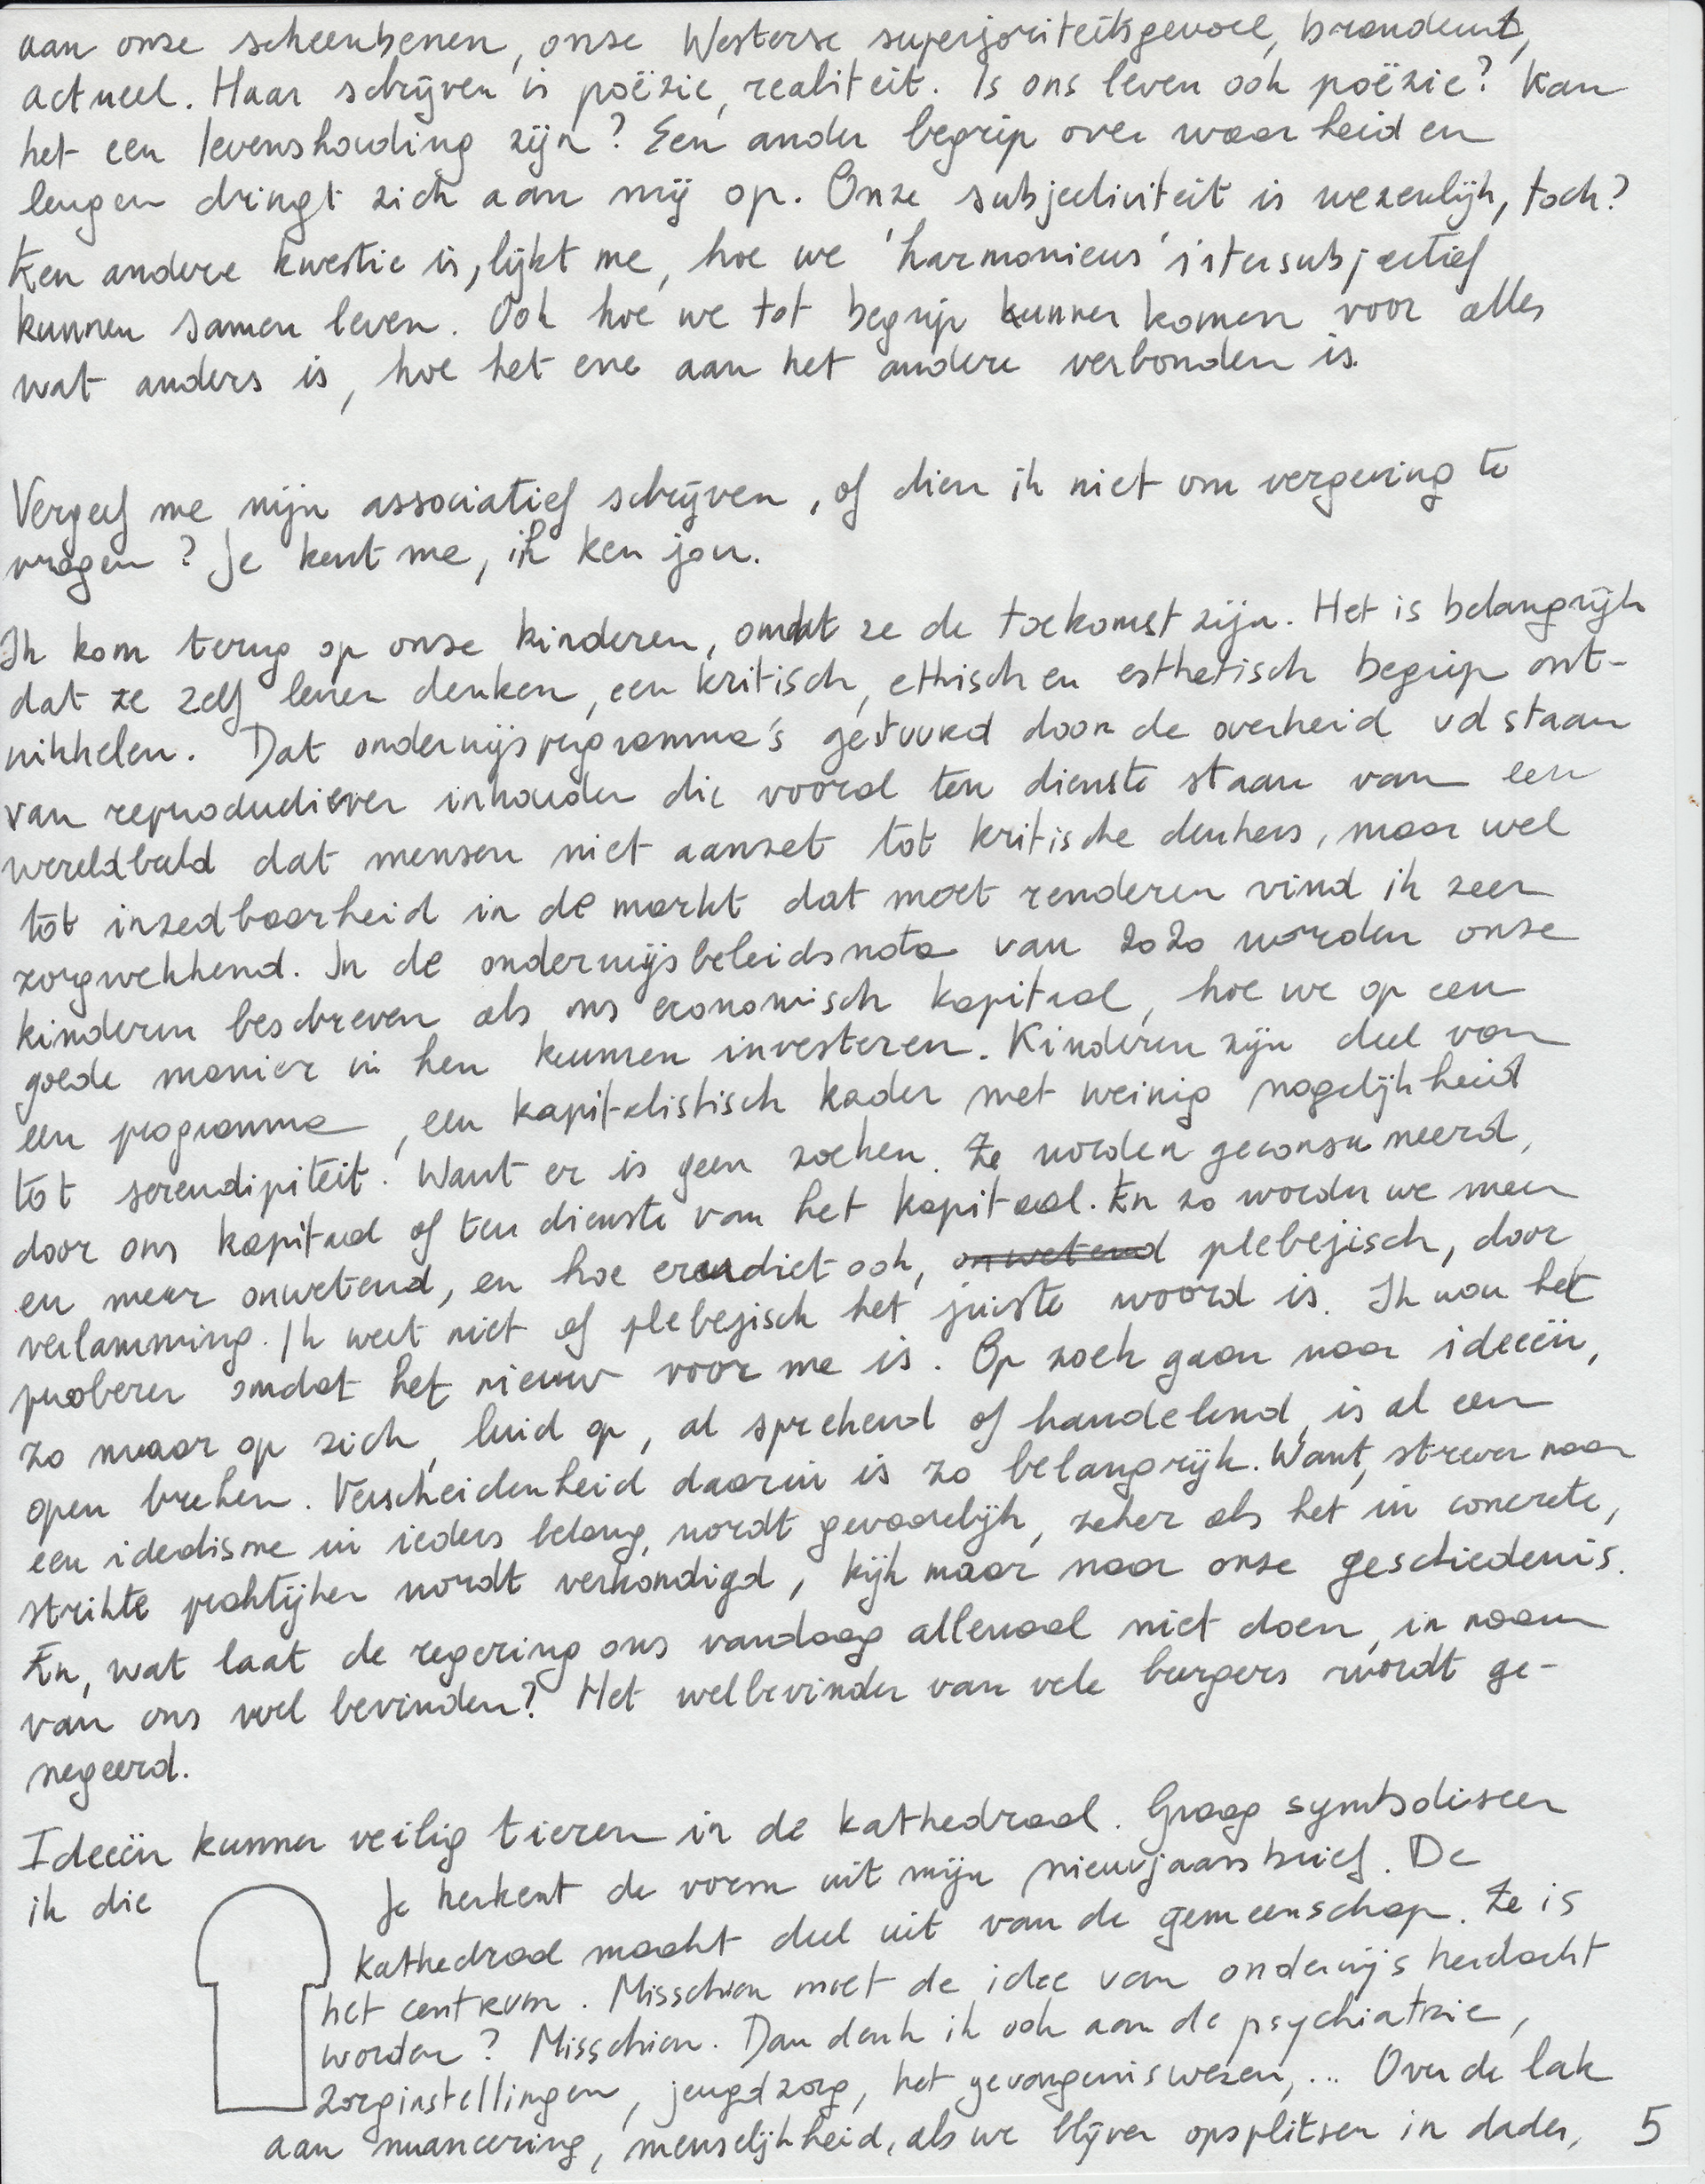 aan onze scheenbenen, onze Westerse superjoriteitsgevoel, brandend,
actueel. Haar schrijven is poëzie, realiteit. Is ons leven ook poëzie? Kan
het een levenshouding zijn? Een ander begrip over waarheid en
leugen dringt zich aan mij op. Onze subjectiviteit is wezenlijk, toch?
Een andere kwestie is, lijkt me, hoe we 'harmonieus' intersubjectief
kunnen samen leven. Ook hoe we tot begrip kunnen komen voor alles
wat anders is, hoe het ene aan het andere verbonden is.
Vergeef me mijn associatief schrijven, of dien ik niet om vergeving te
vragen? Je kent me, ik ken jou.
Ik kom terug op onze kinderen, omdat ze de toekomst zijn. Het is belangrijk
dat ze zelf leren denken, een kritisch, ethisch en esthetisch begrip ont-
wikkelen. Dat onderwijsprogramma's gestuurd door de overheid vol staan
van reproductieven inhouden die vooral ten dienste staan van een
wereldbeeld dat mensen niet aanzet tot kritische denkers, maar wel
tot inzedbaarheid in de markt dat moet renderen vind ik zeer
zorgwekkend. In de onderwijsbeleidsnota van 2020 worden onze
kinderen beschreven als ons economisch kapitaal, hoe we op een
goede manier in hen kunnen investeren. Kinderen zijn deel van
een programma, een kapitalistisch kader met weinig mogelijkheid
tot serendipiteit. Want er is geen zoeken. Ze worden geconsumeerd,
door ons kapitaal of ten dienste van het kapitaal. En zo worden we meer
en meer onwetend, en hoe erudiet ook, onwetend plebejisch, door
verlamming. Ik weet niet of plebejisch het juiste woord is. Ik wou het
proberen omdat het nieuw voor me is. Op zoek gaan naar ideeën,
zo maar op zich, luid op, al sprekend of handelend, is al een
open breken. Verscheidenheid daarin is zo belangrijk. Want, streven naar
een idealisme in ieders belang, wordt gevaarlijk, zeker als het in concrete,
strikte praktijken wordt verkondigd, kijk maar naar onze geschiedenis.
En, wat laat de regering ons vandaag allemaal niet doen, in naam
van ons wel bevinden? Het welbevinden van vele burgers wordt ge-
negeerd.
Ideeën kunnen veilig tieren in de kathedraal. Graag symboliseer
ik die
Je herkent de vorm uit mijn nieuwjaarsbrief. De
kathedraal maakt deel uit van de gemeenschap. Ze is
het centrum. Misschien moet de idee van onderwijs herdacht
worden? Misschien. Dan denk ik ook aan de psychiatrie,
zorginstellingen, jeugdzorg, het gevangeniswezen,... Over de lak
aan nuancering, menselijkheid, als we blijven opsplitsen in dader,
5